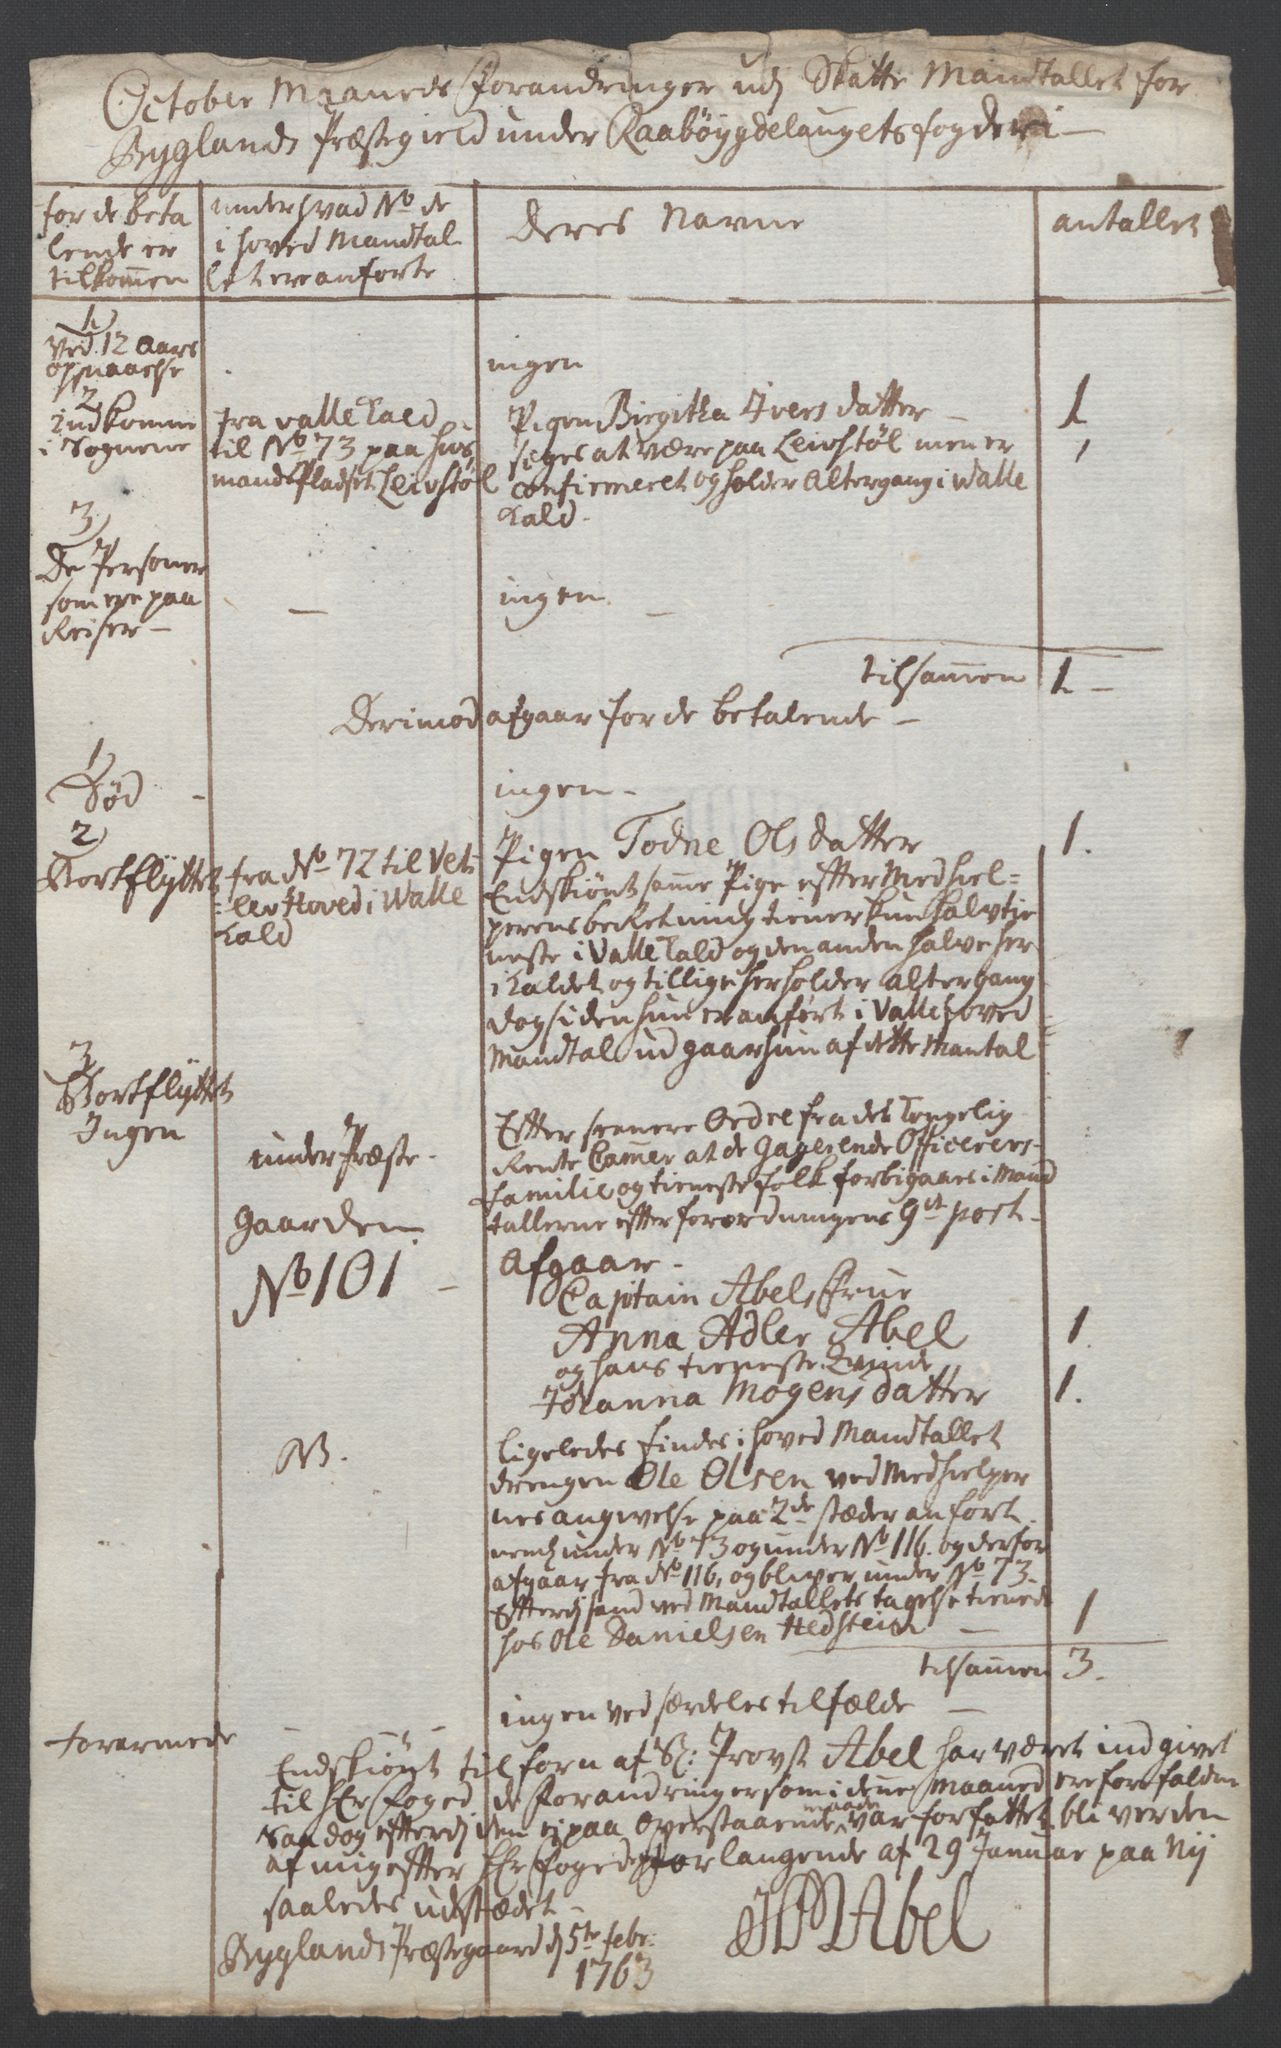 October Maaneds Forandringer udj Skatte Mandtallet for
Byglands Præstegield under Raabøygdelaugets fogderi
for de beta
lende er
tilkom̄en
under hvad No de
i hoved Mandtal
let ere anførte
Deres Navne
antallet
1
ved 12 Aars
opnaaelse
ingen
2
Indkomne
i Sognene
fra Valle Kald
til No 73 paa huus
mands Pladset Leivstøl
Pigen Birgitha Ivers datter
siges at være paa Leivstøl men er
confirmeret og holder Altergang i Walle
Kald.
1
1
3
De Personer
som ere paa
Reiser
ingen.
tilsam̄en 1
Derimod afgaar for de betalende
1
Død
ingen
2
Bortflyttet
fra No 72 til Vet
lev Hoved i Walle
Kald
Pigen Todne Ols datter 1.
Endskiønt sam̄e Pige efter Medhiel=
perens beretning tiener kun halv tie
neste i Valle Kald og den anden halve her
i Kaldet og tillige her holder altergang
dog siden hun er anført i Valle hoved
Mandtal udgaar hun af dette Mantal
3
Bortflyttet
Ingen
under Præste-
gaarden
No 101
Efter senere Ordre fra det Kongelig
Rente Cam̄er at de Gagerende Officerers
Familie og tieneste folk forbigaaes i Mand
tallerne efter forordningens 9de post
Afgaar
Capitain Abels Frue
Anna Adler Abel 1.
og hans tieneste Qvinde
Johanna Mogens datter 1.
NB.
ligeledes findes i hoved Mandtallet
drengen Ole Olsen ved Medhielper
nes angivelse paa 2de stæder anført
neml under No 73 og under No 116. og derfor
afgaar fra No 116, og bliver under No 73.
Efterdj hand ved Mandtallets tagelse tienede
hos Ole Danielsen Hedstein 1
tilsam̄en 3.
forarmede
ingen ved særdeles tilfælde
Endskiønt tilforn af Sr: Provst Abel har været indgivet
til Hr Foged de Forandringer som i denne Maaned ere forfalden
saa dog efterdj den ej paa Overstaaende maade var forfattet, bliver den
af mig efter Hr Fogedens forlangende af 29 Januar paa Nÿ
saaledes udstædet
Byglands Præstegaard d 5te febr:
1763
HMAbel